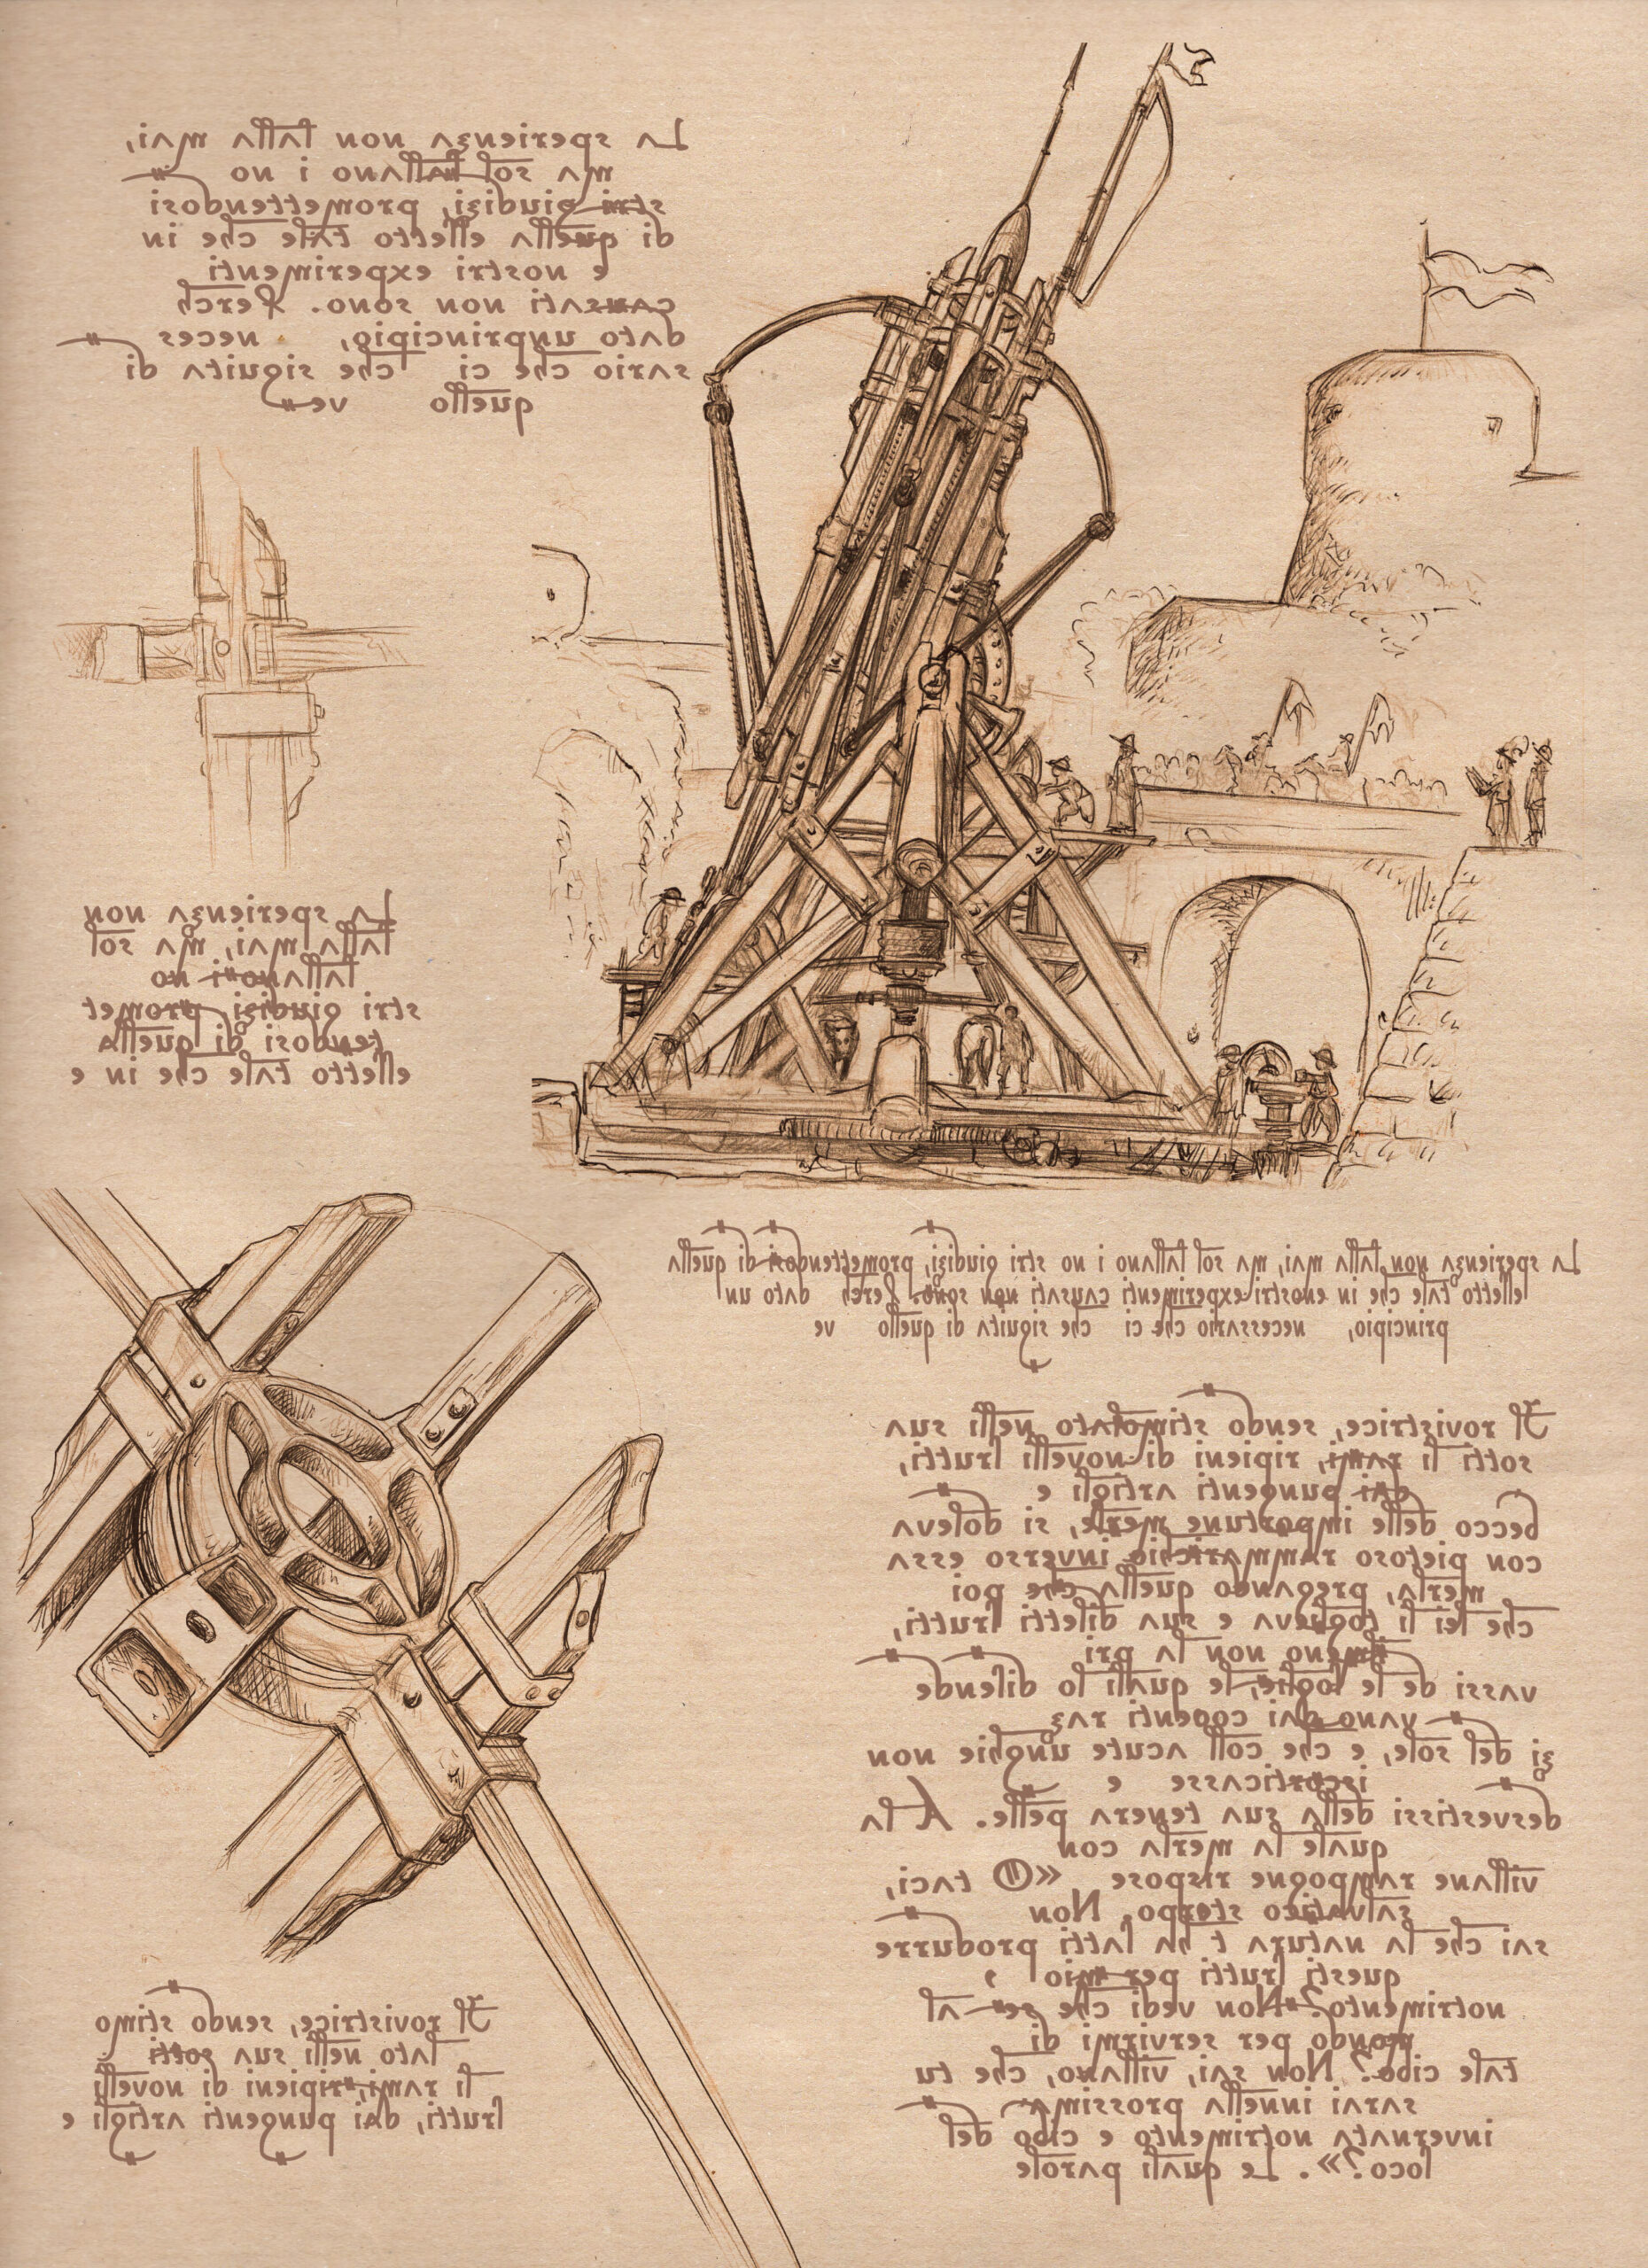 La sperienza non falla mai,
ma sol fallano i no
stri giudizi, promettendosi
di quella effetto tale che in
e nostri experimenti
causati non sono. Perch
dato unprincipio, neces
sario che ci che siguita di
quello ve
La sperienza non
falla mai, ma sol
fallano i no
stri giudizi promet
tendosi di quella
effetto tale che in e
La sperienza non falla mai, ma sol fallano i no stri giudizi, promettendosi di quella
effetto tale che in enostri experimenti causati non sono. Perch dato un
principio, necessario che ci che siguita di quello ve
Il rovistrice, sendo stimolato nelli sua
sotti li rami, ripieni di novelli frutti,
dai pungenti artigli e
becco delle importune merle, si doleva
con pietoso rammarichio inverso essa
merla, pregando quella che poi
che lei li toglieva e sua diletti frutti,
almeno non la pri
vassi de le foglie, le quali lo difende
vano dai cocenti raz
zi del sole, e che coll acute unghie non
iscorticasse e
desvestissi della sua tenera pelle. A la
quale la merla con
villane rampogne rispose «O taci,
salvatico sterpo. Non
sai che la natura t ha fatti produrre
questi frutti per mio
notrimento? Non vedi che se al
mondo per servirmi di
tale cibo? Non sai, villano, che tu
sarai innella prossima
invernata notrimento e cibo del
foco?». Le quali parole
Il rovistrice, sendo stimo
lato nelli sua sotti
li rami, ripieni di novelli
frutti, dai pungenti artigli e